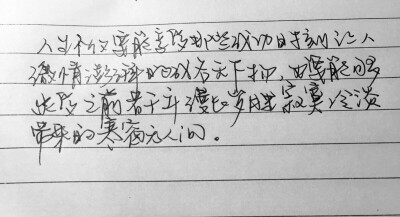 人生不仅要能享受那些成功时刻让人
激情澎湃的以名天下知，也要能忍受
此 之前若干年漫长岁月里寂寞冷淡
带来的寒窗无人问。